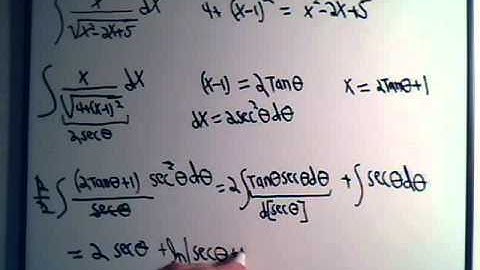 ∫ x/√(x²-2x+5) dx    4+(x-1)² = x²-2x+5
∫ x/√(4+(x-1)²) dx    (x-1) = 2Tanθ    x = 2Tanθ+1
2secθ    dx = 2sec²θdθ
2/2 ∫ (2Tanθ+1)/secθ sec²θdθ = 2∫Tanθsecθdθ + ∫secθdθ
d[secθ]
= 2 secθ + ln|secθ+